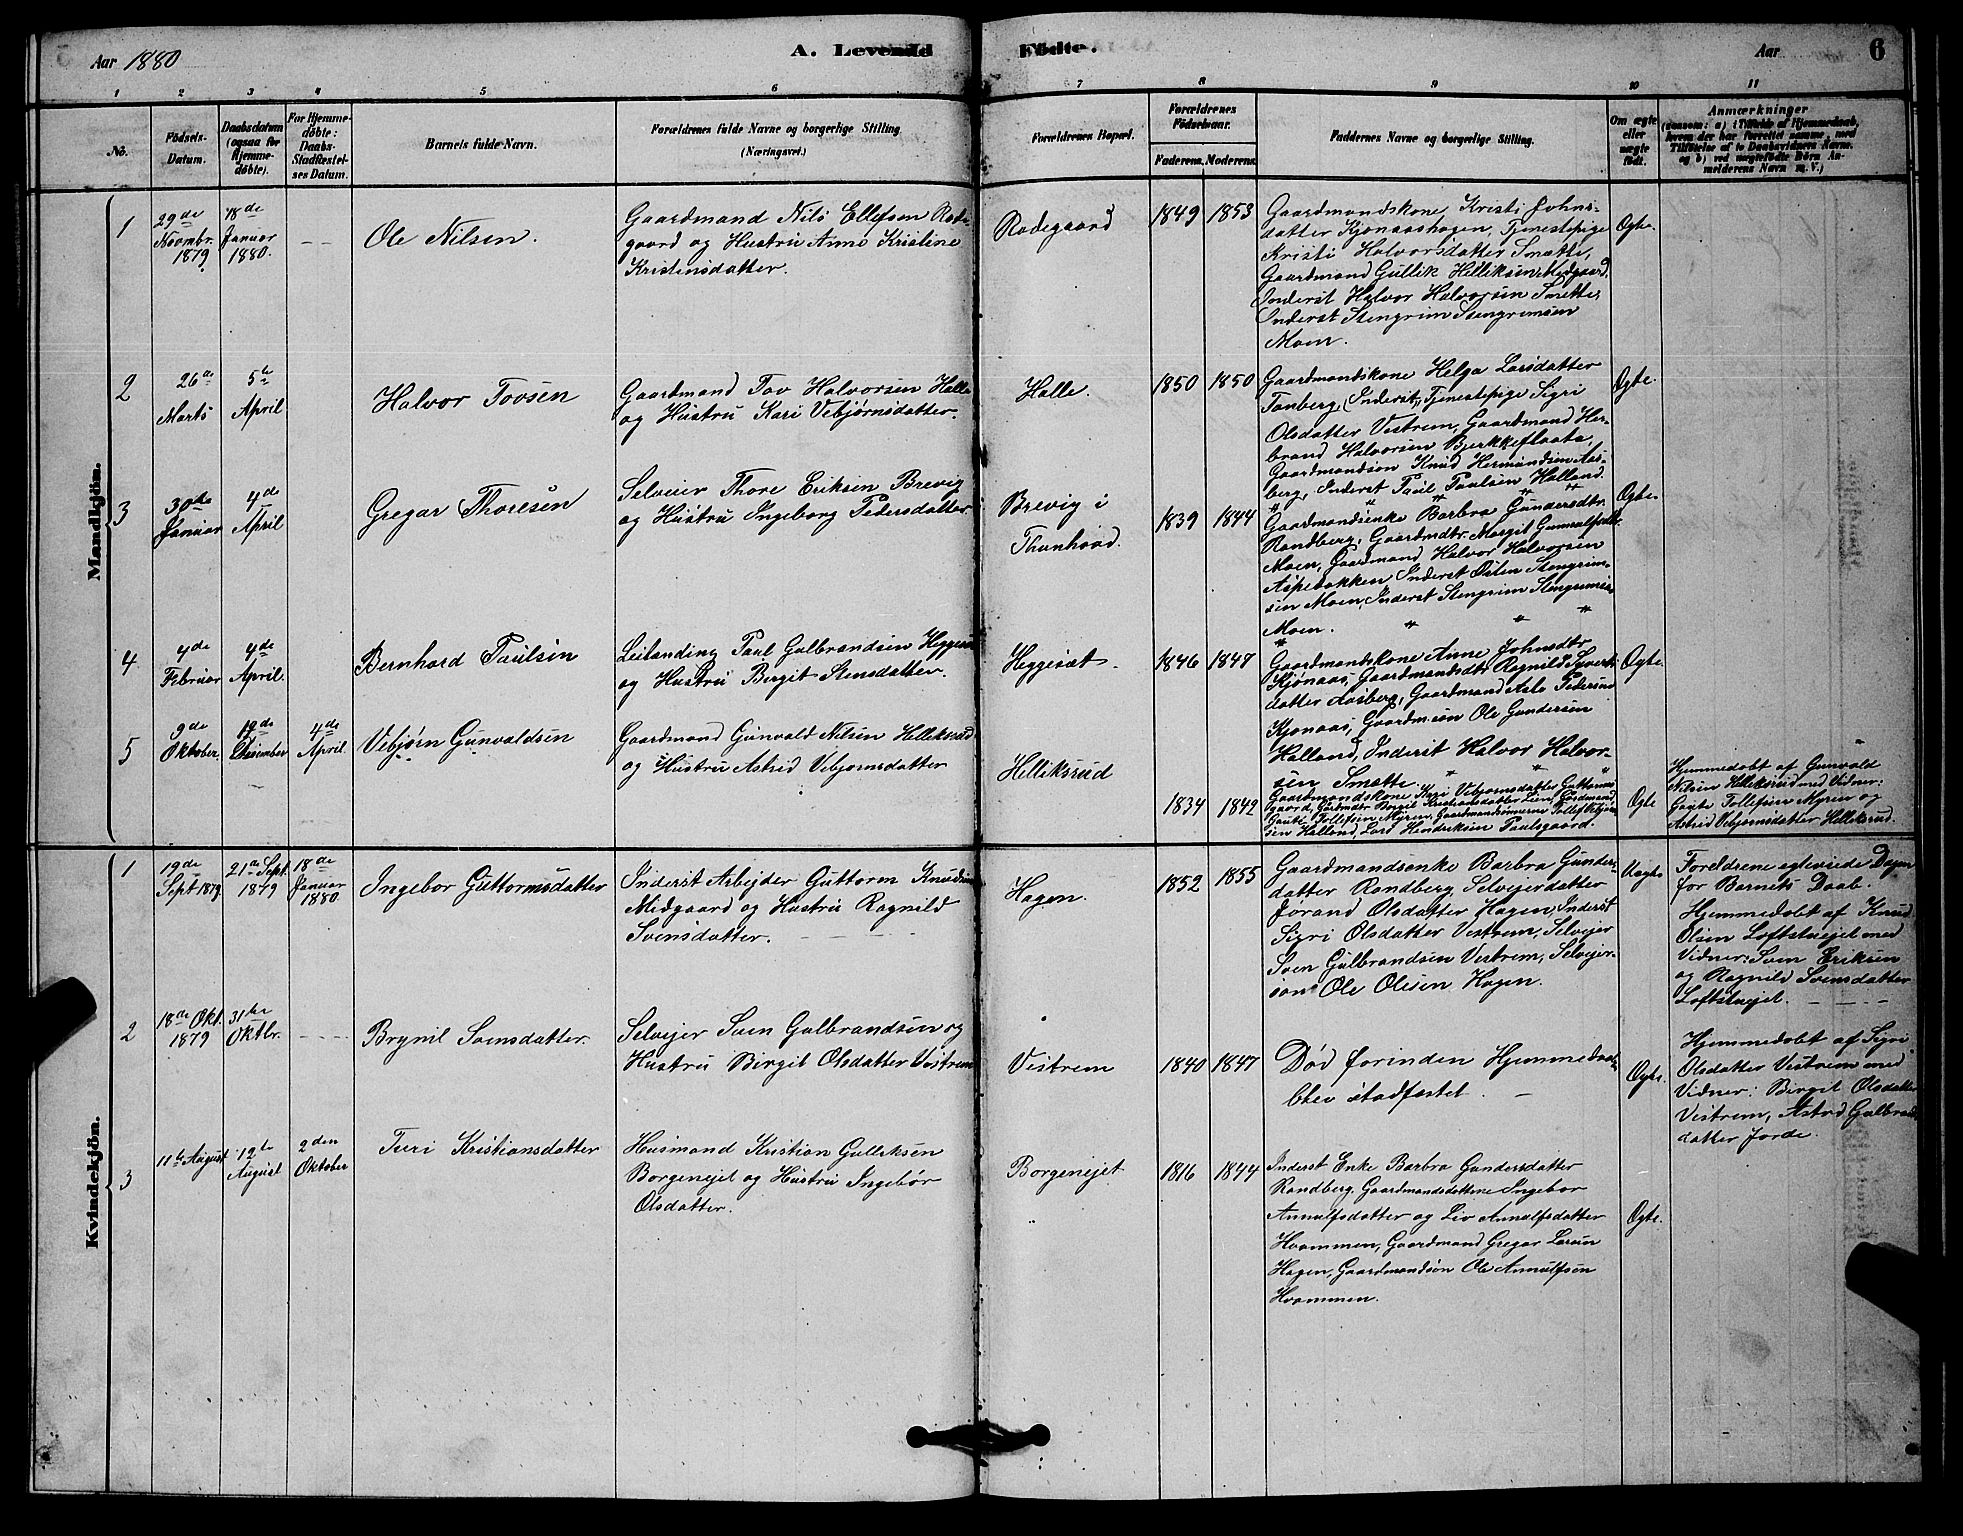 Aar 1880
A. Levende
Fødte.
Aar
6
1 2 3 4 5 6 7 8 9 10 11
No.
Födsels-
Datum.
Daabsdatum
(ogsaa for
Hjemme-
döbte).
For Hjemme-
döbte:
Daabs-
Stadfæstel-
ses Datum.
Barnets fulde Navn.
Forældrenes fulde Navne og borgerlige Stilling
(Næringsvei.)
Forældrenes Bopæl.
Forældrenes
Födselsaar.
Faderens. Moderens.
Faddernes Navne og borgerlige Stilling.
Om ægte
eller
uægte
födt.
Anmærkninger
(saasom: a) i Tilfælde af Hjemmedaab,
hvem der har forrettet samme, med
Tilföielse af to Daabsvidners Navne.
og b) ved uægtefödte Börn An-
melderens Navn m. V.)
Mandkjön.
1
29de
Novmbr.
1879
18de
Januar
1880.
Ole Nilsen.
Gaardmand Nils Ellefsen Rode-
gaard og Hustru Anne Kristine
Kristensdatter.
Rodegaard
1849 1853
Gaardmandskone Kristi Johns-
datter Kjonaashagen, Tjenestepige
Kristi Halvorsdatter Smætte,
Gaardmand Gullik Helliksen Medgaard,
Inderst Halvor Halvorsen Smette,
Inderst Stengrim Stengrimsen
Moen.
Ægte.
2
26de
Marts
5te
April
Halvor Tovsen
Gaardmand Tov Halvorsen Halle
og Hustru Kari Vebjörnsdatter.
Halle.
1850 1850
Gaardmandskone Helga Larsdatter
Tanberg, (Inderst,) Tjenestepige Sigri
Olsdatter Vestrem, Gaardmand Her-
brand Halvorsen Bjerkkeflaata,
Gaardmandsön Knud Hermundsen Aas-
berg, Inderst Paul Paulsen Halland.
Ægte.
3
30te
Januar
4de
April
Gregar Thoresen
Selveier Thore Eriksen Brevig
og Hustru Ingeborg Pedersdatter
Brevig i
Thunhovd.
1839 1844
Gaardmandsenke Barbra Gundersdtr.
Randberg, Gaardmdtr. Margit Gunnulfsdtr.
Moen, Gaardmand Halvor Halvorsen
Aspebakken, Inderst Östen Stengrim-
sen Moen, Inderst Stengrim Stengrimsen
Moen.
Ægte.
4
4de
Februar
4de
April.
Bernhard Paulsen
Leilænding Paul Gulbrandsen Heggesæt
og Hustru Birgit Stensdatter.
Heggesæt.
1846 1847
Gaardmandskone Anne Johnsdtr.
Kjönaas, Gaardmandsdtr. Ragnild Syverts-
datter Aasberg, Gaardmand Asle Pedersen
Kjonaas, Gaardm.sön Ole Gundersen
Halland, Inderst Halvor Halvor-
sen Smætte.
Ægte.
5
9de
Oktober.
Desember
4de
April.
Vebjørn Gunvaldsen
Gaardmand Gunvald Nilsen Helliksrud
og Hustru Astrid Vebjornsdatter
Helliksrud
1834 1842
Gaardmandskone Kari Vebjornsdatter Guttorms-
gaard, Gardmdtr. Birgit Kristiansdatter Lien, Gardmand
Gaute Tollefsen Myren, Gaardmandsönnerne Tollef Vebjörn-
sen Halland, Lars Hendriksen Paulsgaard.
Ægte
Hjemmedobt af Gunvald
Nilsen Helliksrud med Vidner:
Gaute Tollefsen Myren og
Astrid Vebjornsdatter Helliksrud.
Kvindekjön.
1
19de
Sept 1879
21de Sept.
1879
18de
Januar
1880.
Ingebor Guttormsdatter
Inderst Arbejder Guttorm Knudsen
Midgaard og Hustru Ragnild
Svensdatter.
Hagen.
1852 1855
Gaardmandsenke Barbra Gunders-
datter Randberg, Selvejerdatter
Jorand Olsdatter Hagen, Inderst
Sigri Olsdatter Vestrem, Selvejer
Sven Gulbrandsen Vestrem, Selvejer-
son Ole Olesen Hagen.
Uægte
Foreldrene egteviede Dagen
for Barnets Daab.
Hjemmedobt af Knud
Olsen Loftstuejet med
Vidner: Sven Eriksen
og Ragnild Svensdatter
Loftstuejet.
2
18de Okt.
1879
31te
Oktbr.
Brynil Svensdatter.
Selvejer Sven Gulbrandsen og
Hustru Birgit Olsdatter Vestrem
Vestrem
1840 1847
Død forinden Hjemmedaab
blev stadfæstet.
Ægte.
Hjemmedobt af Sigri
Olsdatter Vestrem med
Vidner: Birgit Olsdatter
Vestrem, Astrid Gulbrands-
datter Jorde.
3
11te August
12te
August
2den
Oktober
Turi Kristiansdatter
Husmand Kristian Gulliksen
Borgenejet og Hustru Ingebør
Olsdatter.
Borgenejet
1816 1844
Inderst Enke Barbra Gundersdatter
Randberg. Gaardmandsdøttrene Ingebor
Annulfsdatter og Liv Annulfsdatter
Hvammen, Gaardmand Gregar Larsen
Hagen, Gaardmandsön Ole Annulfsen
Hvammen.
Ægte.